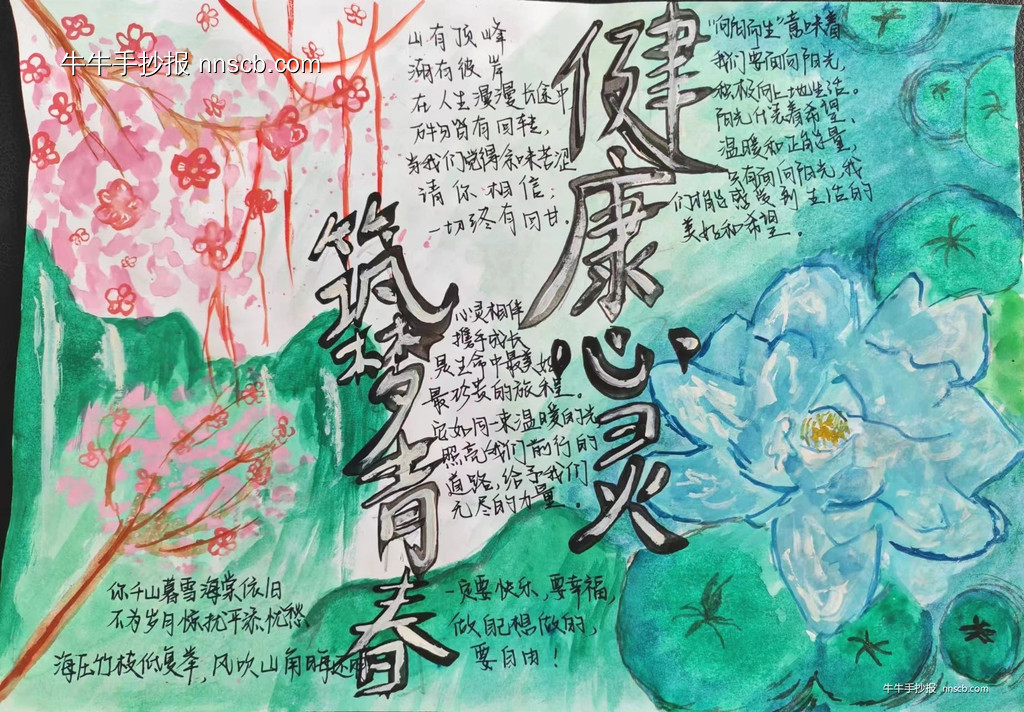 牛牛手抄报 nnscb.com
健康心灵
筑梦青春
山有顶峰
湖有彼岸
在人生漫漫长途中
万物皆有回转,
当我们觉得余味苦涩
请你相信:
一切终有回甘.
"向阳而生"意味着
我们要面向阳光,
积极向上地生活。
阳光代表着希望、
温暖和正能量,
只有面向阳光,我
们才能感受到生活的
美好和希望。
心灵相伴
携手成长
是生命中最美好、
最珍贵的旅程。
它如同一束温暖的光
照亮我们前行的
道路,给予我们
无尽的力量。
你千山暮雪海棠依旧
不为岁月惊扰平添忧愁、
海压竹枝低复举,风吹山角晦还明
一定要快乐,要幸福,
做自己想做的,
要自由!
牛牛手抄报 nnscb.com